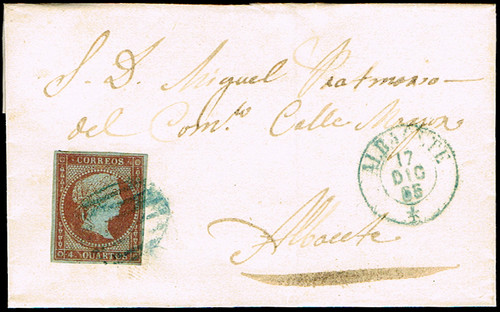 S. D. Miguel
del Com.to Calle Mayor
Albacete
CORREOS
4 CUARTOS
ALBACETE
17
DIC